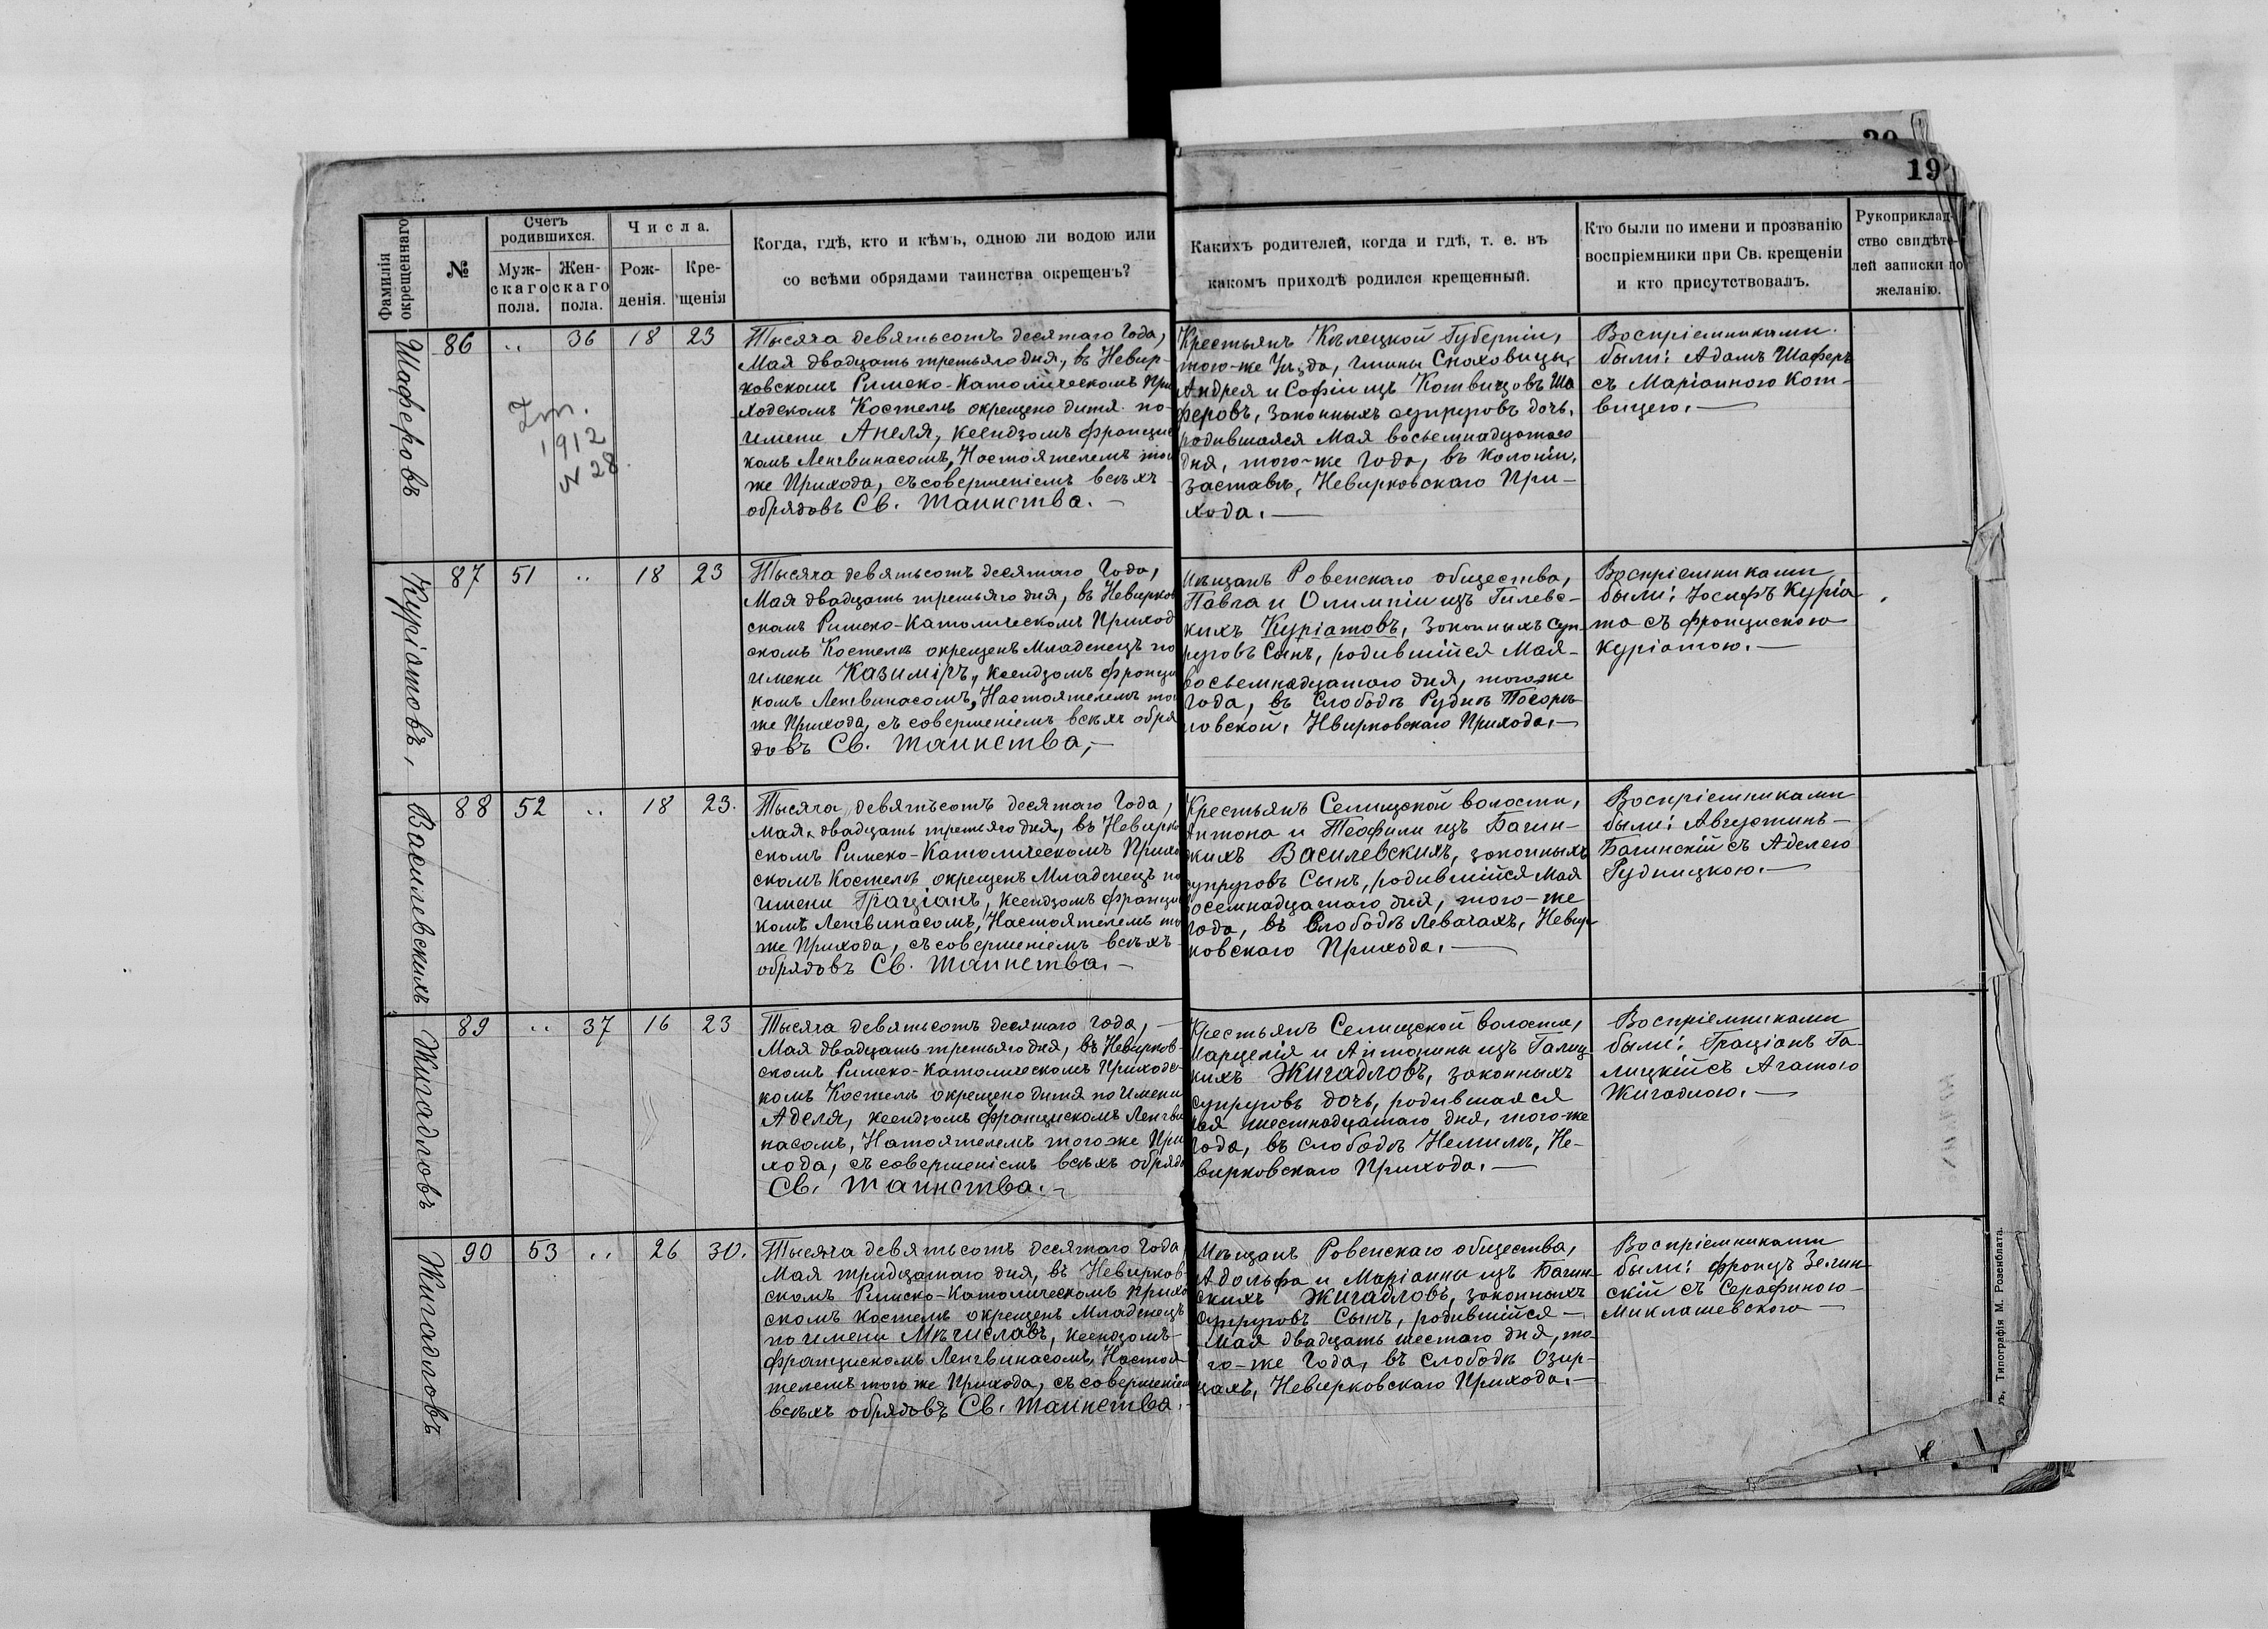 20
19
Фамилія окрещеннаго
№
Счетъ родившихся.
Муж-
скаго
пола.
Жен-
скаго
пола.
Числа.
Рож-
денія.
Кре-
щенія
Когда, гдѣ, кто и кѣмъ, одною ли водою или
со всѣми обрядами таинства окрещенъ?
Какихъ родителей, когда и гдѣ, т. е. въ
какомъ приходѣ родился крещенный.
Кто были по имени и прозванію
воспріемники при Св. крещеніи
и кто присутствовалъ.
Рукоприклад-
ство свидѣте-
лей записки по
желанію.
Шаферовъ
86 .. 36 18 23
Zm.
1912
N 28.
Тысяча девятьсотъ десятаго Года,
Мая двадцать третьяго дня, въ Невир-
ковскомъ Римско-Католическомъ При
ходскомъ Костелѣ окрещено дитя по-
имени Анеля, Ксендзомъ Францис
комъ Ленгвинасомъ, Настоятелемъ того
же Прихода, съ совершеніемъ всѣхъ
обрядовъ Св. Таинства. —
Крестьянъ Кѣлецкой Губерніи,
того-же Уѣзда, гмины Снаховицы,
Андрея и Софіи изъ Котвицовъ Ша
феровъ, законныхъ супруговъ дочь,
родившаяся Мая восьемнадцатаго
дня, того-же Года, въ Колоніи,
Заставѣ, Невирковскаго При-
хода. —
Воспріемниками
были: Адамъ Шаферъ
съ Маріанною Кот-
вицею. —
Куріатовъ,
87 51 .. 18 23
Тысяча девятьсотъ десятаго Года,
Мая двадцать третьяго дня, въ Невирков
скомъ Римско-Католическомъ Приход
скомъ Костелѣ окрещенъ Младенецъ по
имени Казиміръ, Ксендзомъ Францис
комъ Ленгвинасомъ, Настоятелемъ того
же Прихода, съ совершеніемъ всѣхъ обря
довъ Св. Таинства, —
Мѣщанъ Ровенскаго общества,
Павла и Олимпіи изъ Гилевс-
кихъ Куріатовъ, Законныхъ суп-
руговъ Сынъ, родившійся Мая-
восьемнадцатаго дня, тогоже
Года, въ Слободѣ Руднѣ Погорѣ
ловской, Нвирковскаго Прихода. —
Воспріемниками
были: Іосифъ Куріа-
та съ Францискою
Куріатою. —
Василевскихъ
88 52 .. 18 23.
Тысяча девятьсотъ десятаго Года,
Мая двадцать третьяго дня, въ Невирко
скомъ Римско-Католическомъ Прихо
скомъ Костелѣ окрещенъ Младенецъ по
имени Граціанъ, Ксендзомъ Францис
комъ Ленгвинасомъ, Настоятелемъ то
же Прихода, съ совершеніемъ всѣхъ-
обрядовъ Св. Таинства. —
Крестьянъ Селищской волости,
Антона и Теофили изъ Багин-
скихъ Василевскихъ, законныхъ
супруговъ Сынъ, родившійся Мая
восемнадцатаго дня, того-же
Года, въ Слободѣ Левачахъ, Невир-
ковскаго Прихода. —
Воспріемниками
были: Августинъ —
Багинскій съ Аделею
Рудницкою. —
Жигадловъ
89 .. 37 16 23
Тысяча девятьсотъ десятаго года, —
Мая двадцать третьяго дня, въ Невирков-
скомъ Римско-Католическомъ Приходс-
комъ Костелѣ окрещено дитя по Имени
Аделя, Ксендзомъ Францискомъ Ленгви
насомъ, Натоятелемъ тогоже При
хода, съ совершеніемъ всѣхъ обрядо
Св. Таинства. —
Крестьянъ Селищской волости,
Марцелія и Антонины изъ Галиц-
кихъ Жигадловъ, законныхъ
супруговъ дочь, родившаяся
Мая шестнадцатаго дня, того-же
Года, въ слободѣ Немилѣ, Не-
вирковскаго Прихода. —
Воспріемниками
были: Граціанъ Га-
лицкій съ Агатою
Жигадлою. —
Жигадловъ
90 53 .. 26 30.
Тысяча девятьсотъ десятаго Года
Мая тридцатаго дня, въ Невирков-
скомъ Римско-Католическомъ Прихо
скомъ Костелѣ окрещенъ Младенецъ
по имени Мѣчиславъ, Ксендзомъ-
Францискомъ Ленгвинасомъ, Настоя
телемъ того же Прихода, съ совершеніем
всѣхъ обрядовъ Св. Таинства.
Мѣщанъ Ровенскаго общества,
Адольфа и Маріанны изъ Багин-
скихъ Жигадловъ, законныхъ
Супруговъ Сынъ, родившійся —
Мая двадцать шестаго дня, то
го-же Года, въ слободѣ Озир-
цахъ, Невирковскаго Прихода. —
Воспріемниками
были: Францъ Зелин-
скій съ Серафиною-
Миклашевскою —
Типографія М. Розенблата.